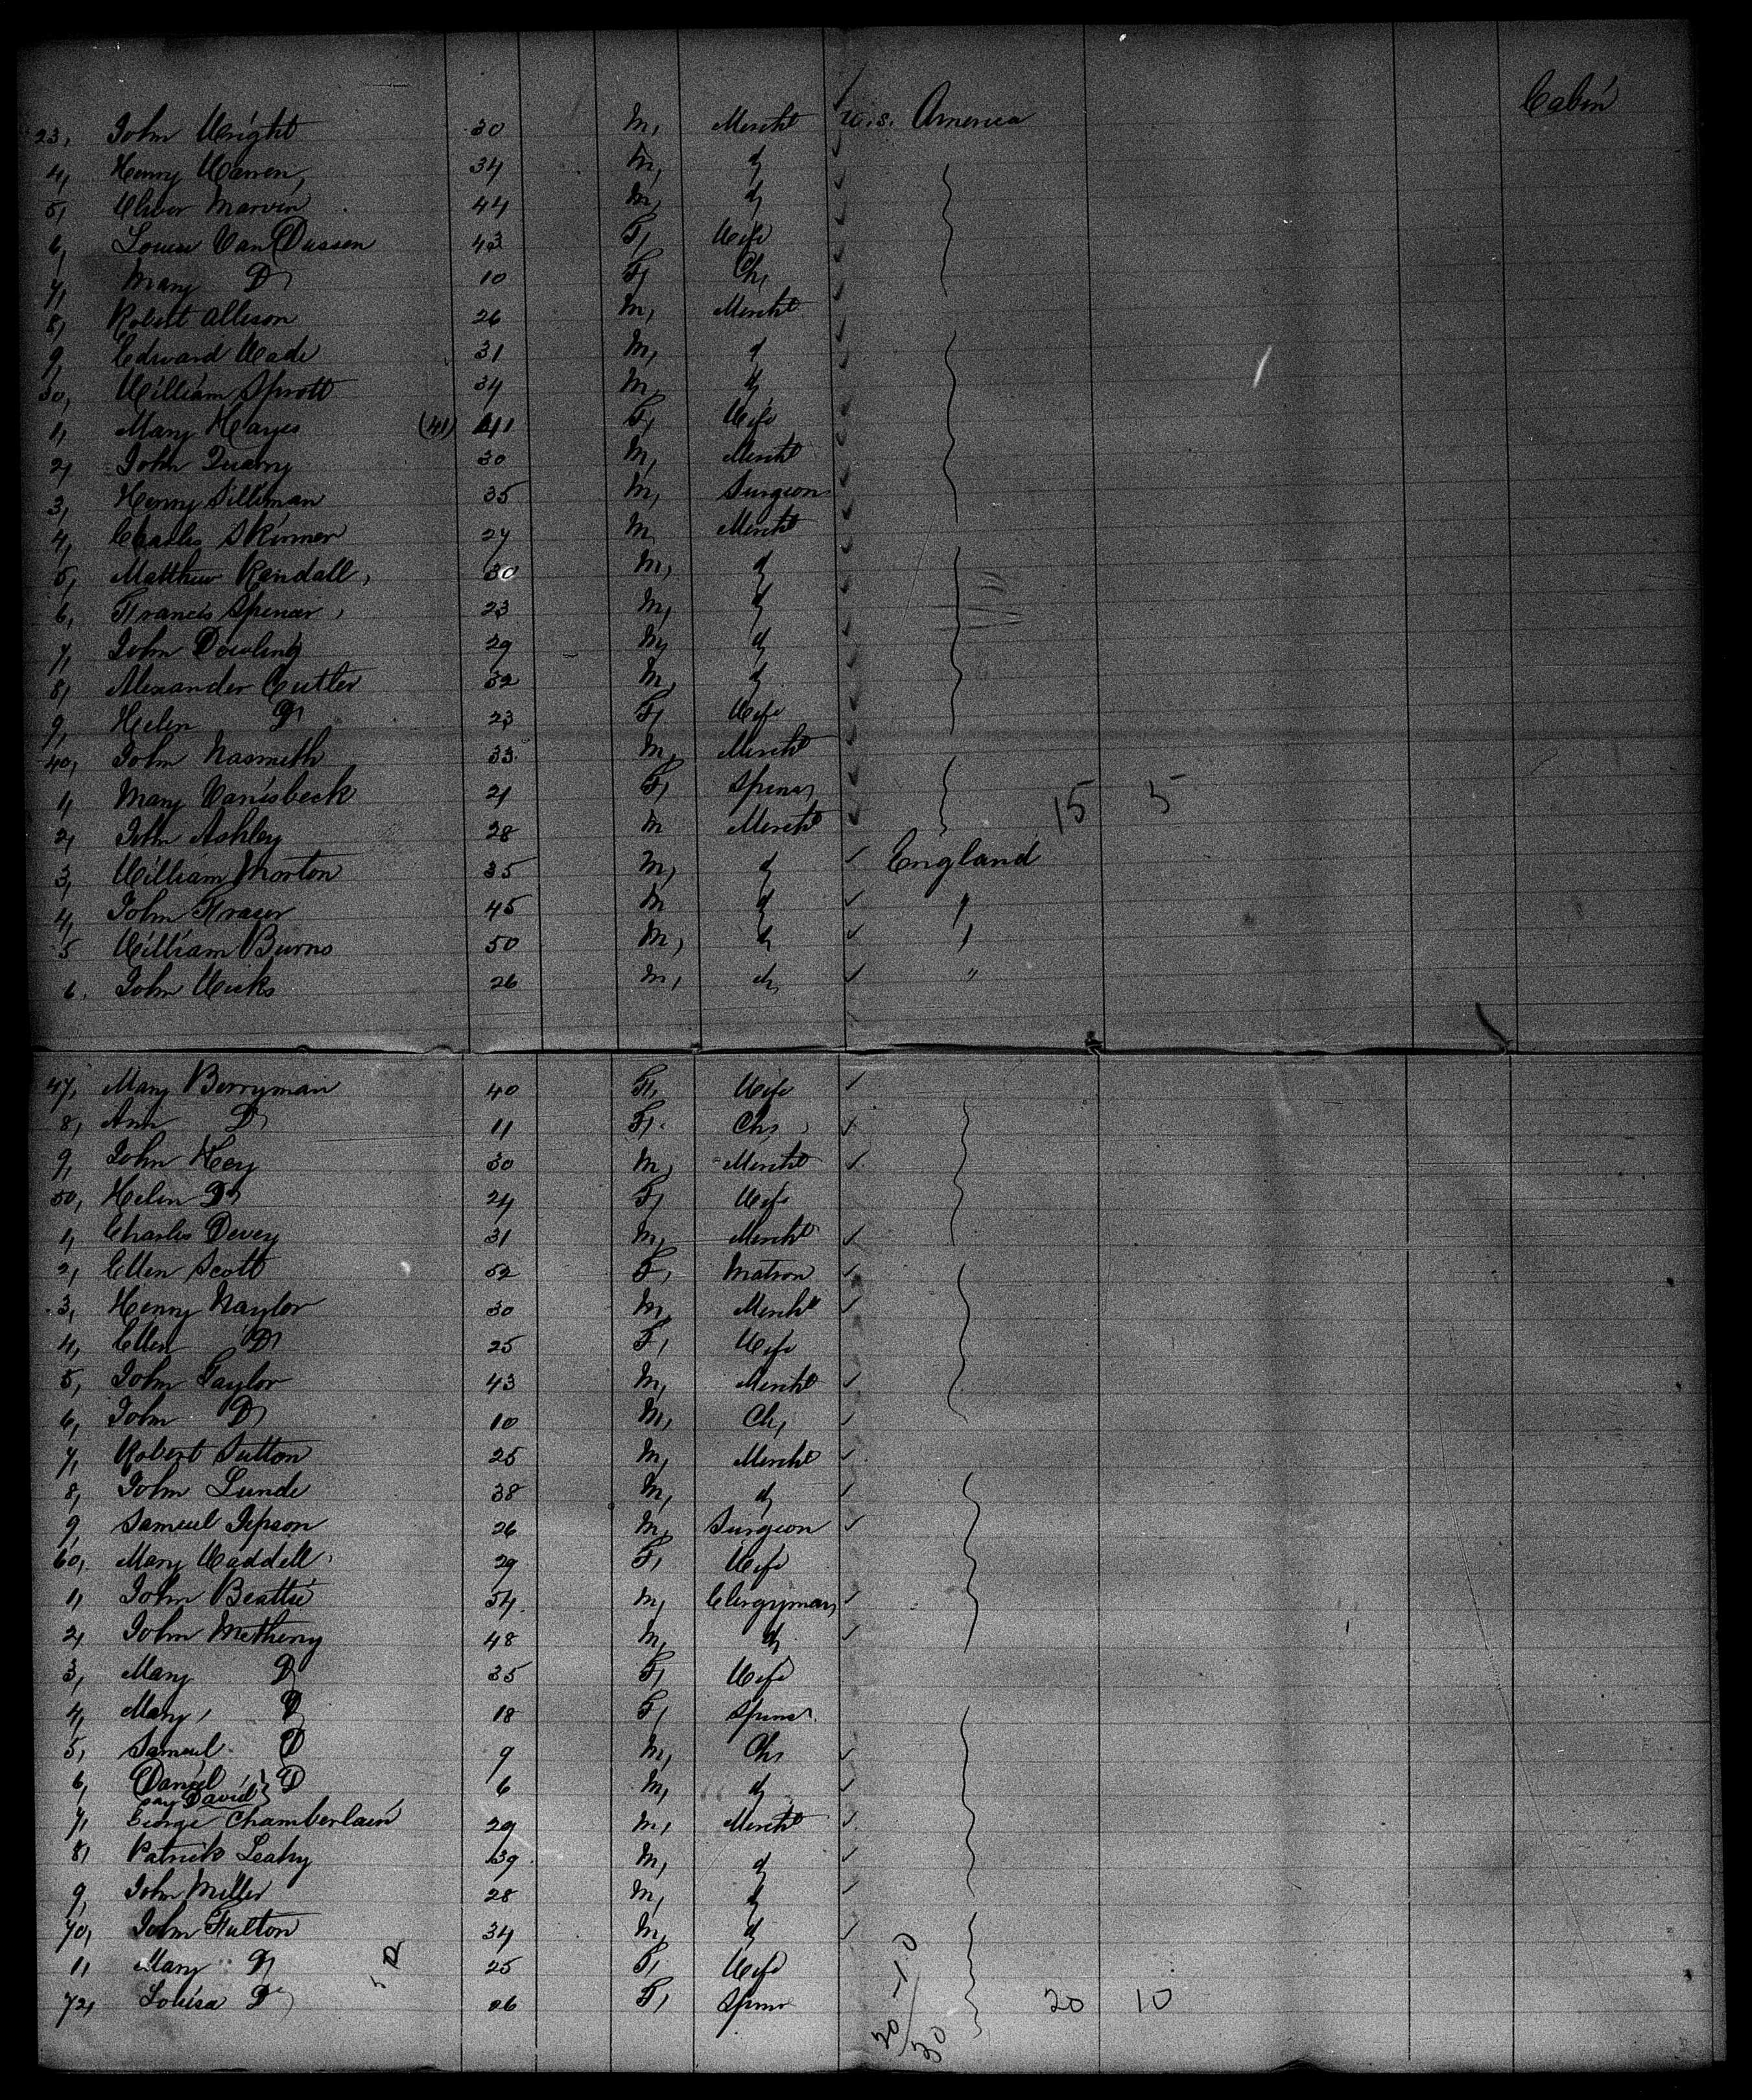 Cabin
23, John Wright 30 M, Mercht U.S. America
4, Henry Warren, 34 M, d
5, Oliver Marvin 44 M, d
6, Louise Van Dussen 43 F, Wife
7, Mary Do 10 F, Ch,
8, Robert Allison 26 M, Mercht
9, Edward Wade 31 M, d
30, William Sprott 34 M, d
1, Mary Hayes (41) 41 F, Wife
2, John Quarry 30 M, Mercht
3, Henry Silliman 35 M, Surgeon
4, Charles Skinner 27 M, Mercht
5, Matthew Randall, 30 M, d
6, Francis Spencer, 23 M, d
7, John Dowling 29 M, d
8, Alexander Cutler 32 M, d
9, Helen Do 23 F, Wife
40, John Nasmith 33 M, Mercht
1, Mary Vanisbeck 21 F, Spins, 15 5
2, John Ashley 28 M Mercht
3, William Morton 35 M, d England
4, John Fraser 45 M d "
5 William Burns 50 M, d "
6. John Weeks 26 M, d "
47, Mary Berryman 40 F, Wife
8, Ann Do 11 F. Ch,
9, John Key 30 M, Mercht
50, Helen Do 24 F, Wife
1, Charles Devey 31 M, Mercht
2, Ellen Scott 52 F, Matron
3, Henry Naylor 30 M, Mercht
4, Ellen Do 25 F, Wife
5, John Taylor 43 M, Mercht
6, John Do 10 M, Ch,
7, Robert Sutton 25 M, Mercht
8, John Lunde 38 M, d
9, Samuel Jepson 26 M, Surgeon
60, Mary Waddell 29 F, Wife
1, John Beattie 34 M, Clergyman
2, John Metheny 48 M, d
3, Mary D 35 F, Wife
4, Mary, D 18 F, Spinsr
5, Samuel D 9 M, Ch,
6, Daniel, } D 6 M, d
say David
7, George Chamberlain 29 M, Mercht
8, Patrick Leahy 39 M, d
9, John Miller 28 M, d
70, John Fulton 34 M, d
1, Mary Do 25 F, Wife
72, Louisa Do 26 F, Spinr 20 10
20/30